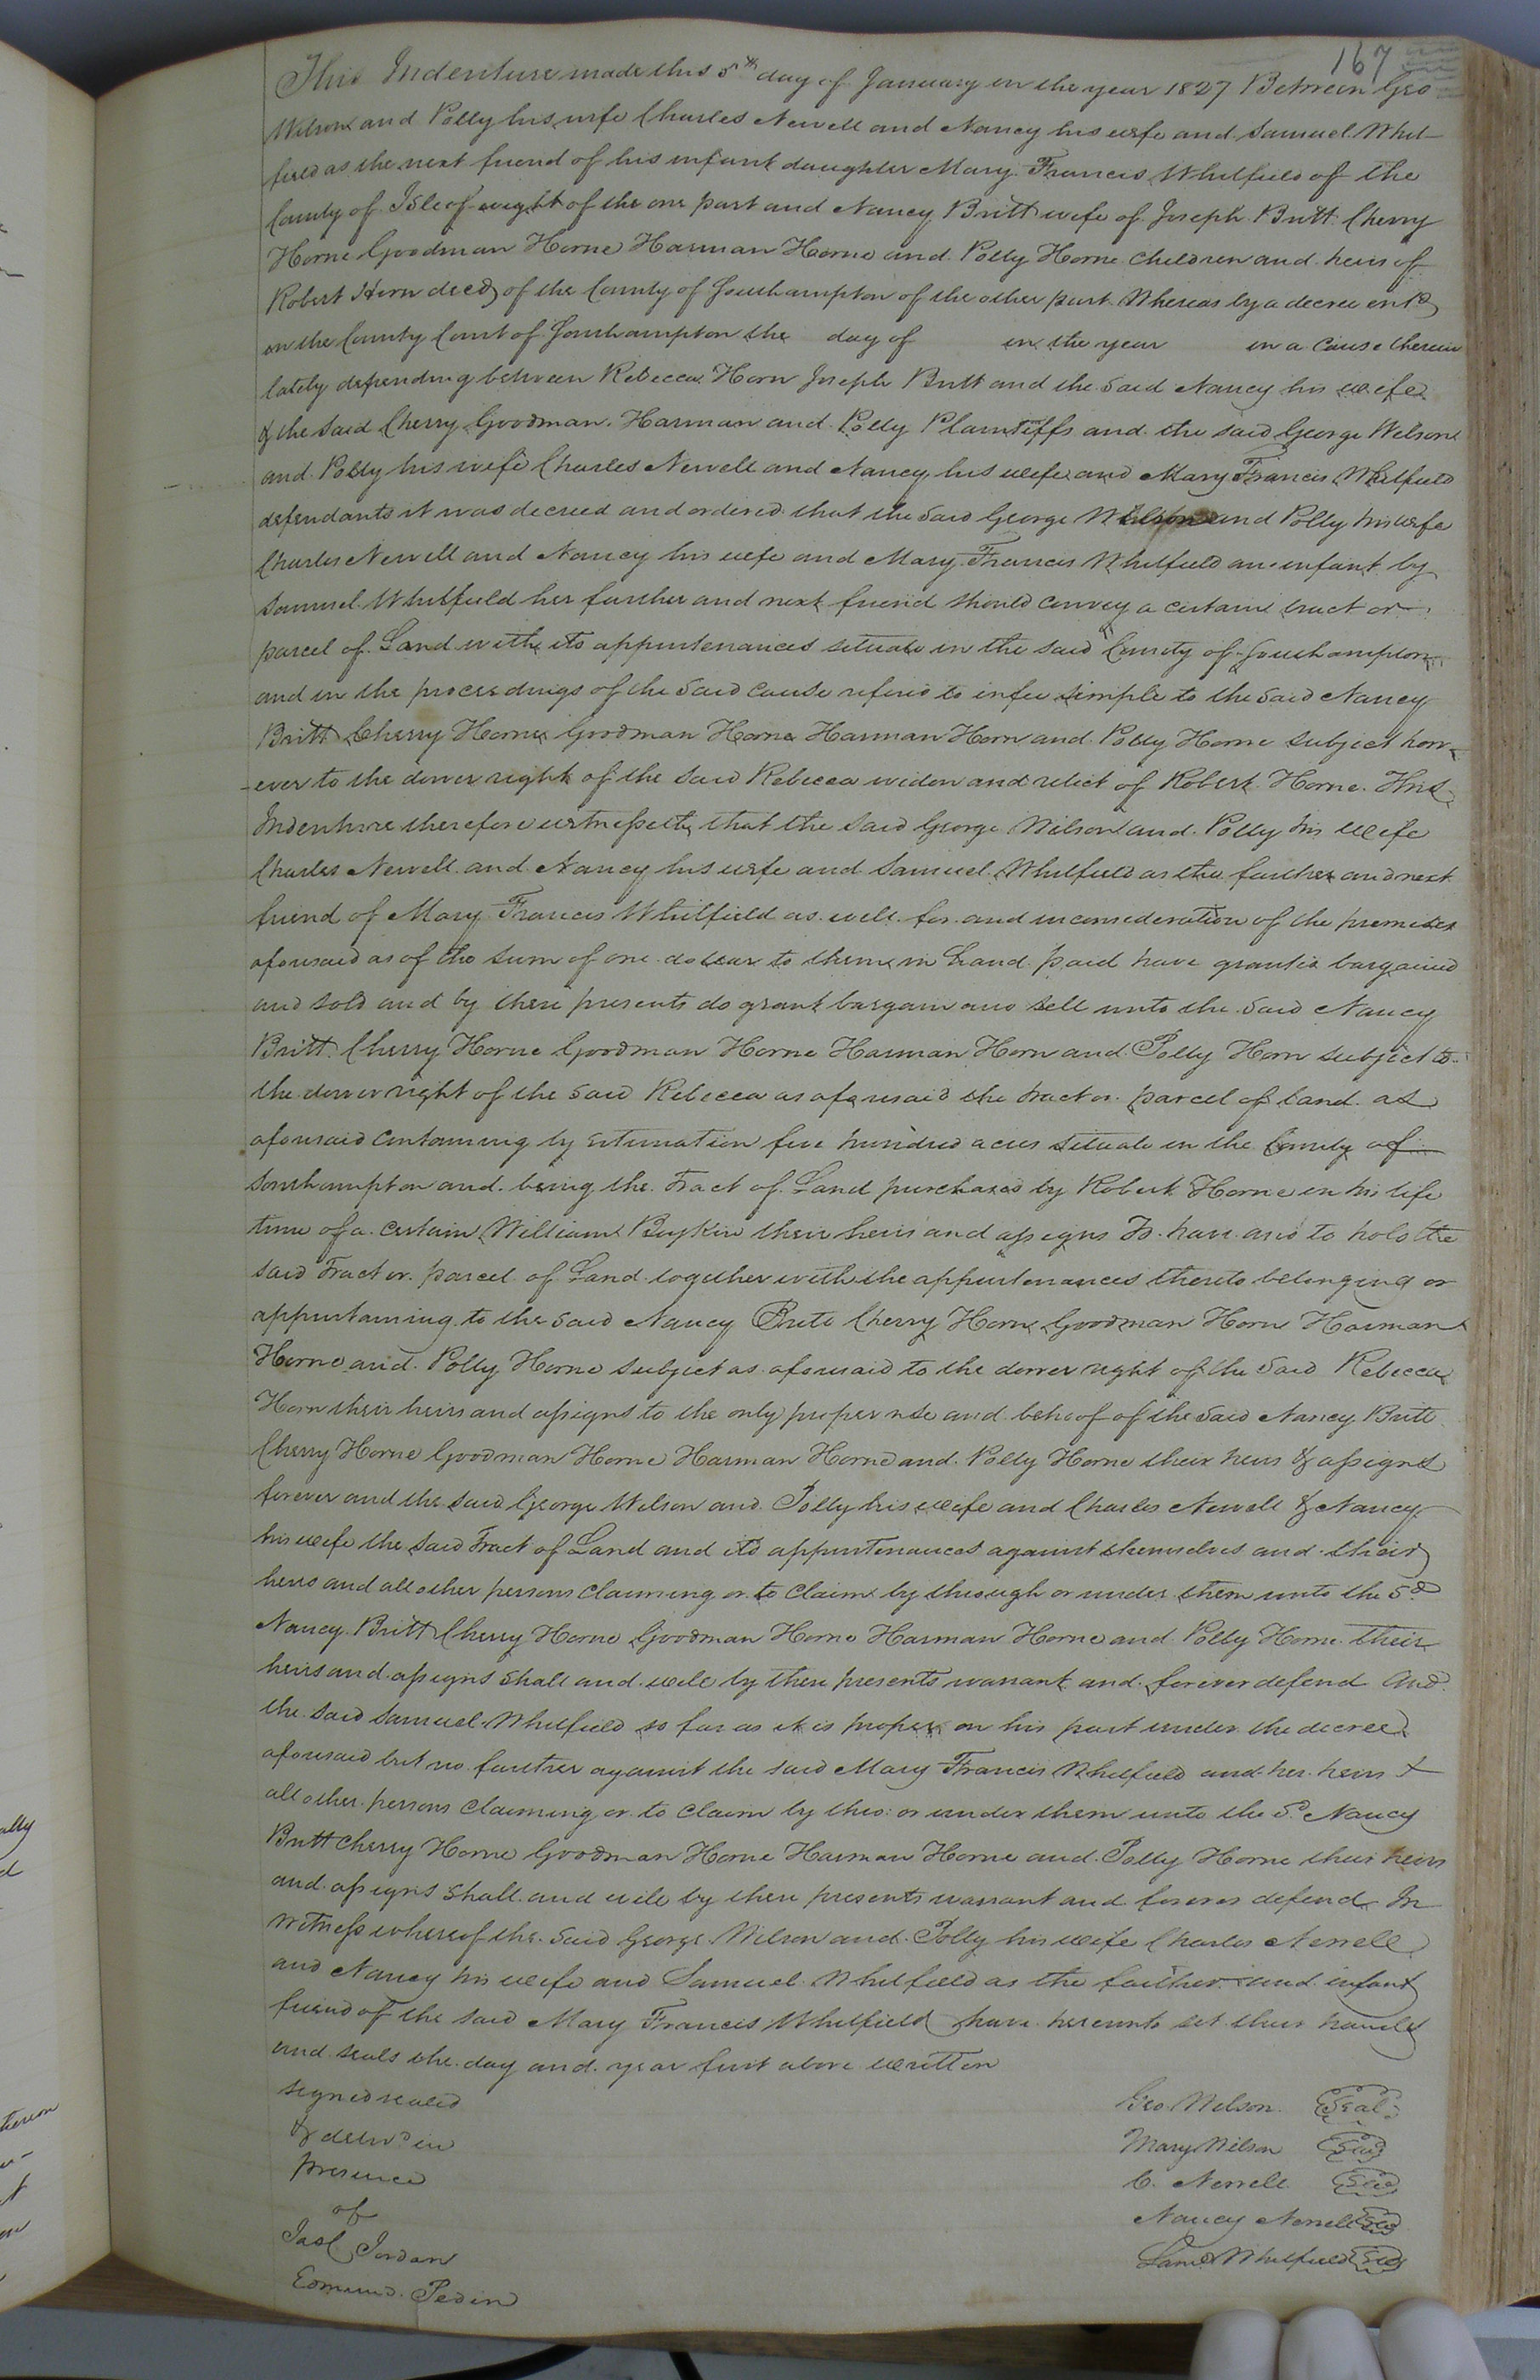 167
This Indenture made this 5th day of January in the year 1827 Between Geo
Wilson and Polly his wife Charles Newell and Nancy his wife and Samuel Whit-
field as the next friend of his infant daughter Mary Francis Whitfield of the
County of Isle of wight of the one part and Nancy Britt wife of Joseph Britt Cherry
Horne Goodman Horne Harman Horne and Polly Horne children and heirs of
Robert Horn decd, of the County of Southampton of the other part. Whereas by a decree entd
in the County Court of Southampton the day of in the year in a cause therein
lately depending between Rebecca Horn Joseph Britt and the said Nancy his wife
& the said Cherry Goodman. Harman and Polly Plaintiffs and the said George Wilson
and Polly his wife Charles Newell and Nancy his wife and Mary Francis Whitfield
defendants it was decreed and ordered that the said George Wilson and Polly his wife
Charles Newell and Nancy his wife and Mary Francis Whitfield an infant by
Samuel Whitfield her farther and next friend should convey a certain tract or
parcel of Land with its appurtenances situate in the said County of Southampton
and in the proceedings of the said cause referd to in fee simple to the said Nancy
Britt Cherry Horne Goodman Horne Harman Horn and Polly Horne subject how-
-ever to the dower right of the said Rebecca widow and relict of Robert Horne. This
Indenture therefore witnesseth, that the said George Wilson and Polly his wife
Charles Newell and Nancy his wife and Samuel Whitfield as the farther and next
friend of Mary Francis Whitfield as well for and in consideration of the premises
aforesaid as of the sum of one dollar to them in hand paid have granted bargained
and sold and by these presents do grant bargain and sell unto the said Nancy
Britt Cherry Horne Goodman Horne Harman Horn and Polly Horn subject to
the dower right of the said Rebecca as aforesaid the tract or parcel of land as
aforesaid containing by estimation five hundred acres situate in the County of
Southampton and being the Tract of Land purchased by Robert Horne in his life
time of a certain William Boykin their heirs and assigns To have and to hold the
said Tract or parcel of Land together with the appurtenances thereto belonging or
appurtaining to the said Nancy Britt Cherry Horne Goodman Horn Harman
Horne and Polly Horne subject as aforesaid to the dower right of the said Rebecca
Horn their heirs and assigns to the only proper use and behoof of the said Nancy Britt
Cherry Horne Goodman Horne Harman Horne and Polly Horne their heirs & assigns
forever and the said George Wilson and Polly his wife and Charles Newell & Nancy
his wife the said Tract of Land and its appurtenances against themselves and their
heirs and all other persons claiming or to claim by through or under them unto the sd
Nancy Britt Cherry Horne Goodman Horne Harman Horne and Polly Horne their
heirs and assigns shall and will by these presents warrant and forever defend And
the said Samuel Whitfield so far as it is proper on his part under the decree
aforesaid but no farther against the said Mary Francis Whitfield and her heirs &
all other persons claiming or to claim by thro: or under them unto the sd Nancy
Britt Cherry Horne Goodman Horne Harman Horne and Polly Horne their heirs
and assigns shall and will by these presents warrant and forever defend In
witness whereof the said George Wilson and Polly his wife Charles Newell
and Nancy his wife and Samuel Whitfield as the faither and infant
friend of the said Mary Francis Whitfield have hereunto set their hands
and seals the day and year first above written
signed sealed
& delivd in
presence
of
Jas Jordan
Edmund Pedin
Geo. Wilson Seal
Mary Wilson Seal
C. Newell Seal
Nancy Newell Seal
Saml Whitfield Seal